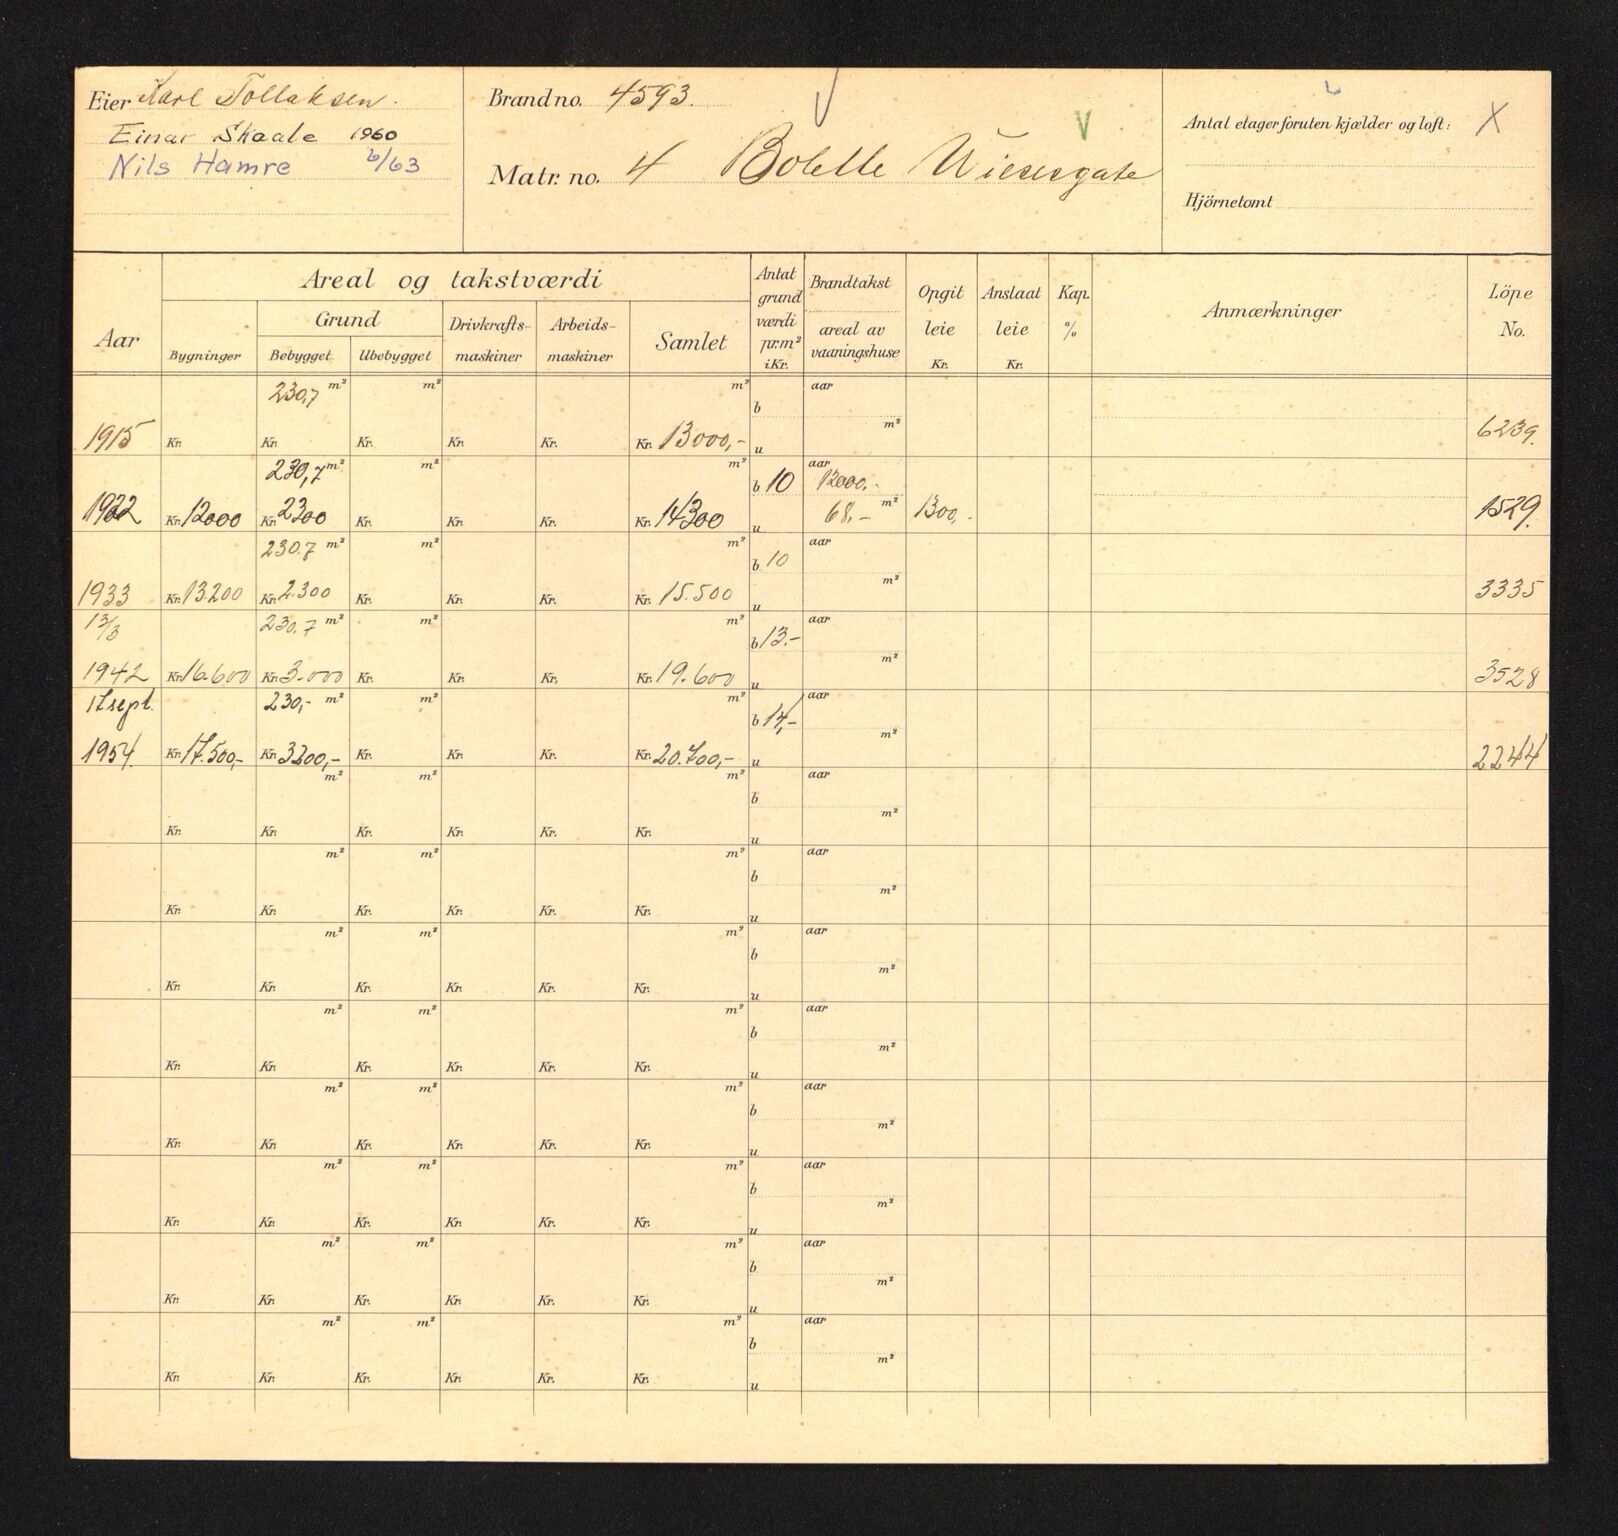 Eier Karl Tollaksen.
Einar Skaale 1960
Nils Hamre 6/63
Brand no. 4593.
Matr. no. 4 Bolette Wiesesgate
Antal etager foruten kjælder og loft: X
Hjörnetomt
Aar
Areal og takstværdi
Grund
Bygninger
Bebygget
Ubebygget
Drivkrafts-
maskiner
Arbeids-
maskiner
Samlet
Antat
grund
værdi
pr.m²
i Kr.
Brandtakst
areal av
vaaningshuse
Opgit
leie
Kr.
Anslaat
leie
Kr.
Kap.
%
Anmærkninger
Löpe
No.
230,7 m² m² m² b aar
1915 Kr. Kr. Kr. Kr. Kr. Kr. 13000,- u m² 6239.
230,7 m² m² m² b 10 aar 12000.-
1922 Kr. 12000 Kr. 2300 Kr. Kr. Kr. Kr. 14300 u 68,- m² 1300,- 1529.
230.7 m² m² m² b 10 aar
1933 Kr. 13200 Kr. 2.300 Kr. Kr. Kr. Kr. 15.500 u m² 3335
13/3 230.7 m² m² m² b 13.- aar
1942 Kr. 16.600 Kr. 3.000 Kr. Kr. Kr. Kr. 19.600 u m² 3528
17 sept. 230,- m² m² m² b 14,- aar
1954 Kr. 17.500,- Kr. 3200,- Kr. Kr. Kr. Kr. 20.700,- u m² 2244
m² m² m² b aar
Kr. Kr. Kr. Kr. Kr. Kr. u m²
m² m² m² b aar
Kr. Kr. Kr. Kr. Kr. Kr. u m²
m² m² m² b aar
Kr. Kr. Kr. Kr. Kr. Kr. u m²
m² m² m² b aar
Kr. Kr. Kr. Kr. Kr. Kr. u m²
m² m² m² b aar
Kr. Kr. Kr. Kr. Kr. Kr. u m²
m² m² m² b aar
Kr. Kr. Kr. Kr. Kr. Kr. u m²
m² m² m² b aar
Kr. Kr. Kr. Kr. Kr. Kr. u m²
m² m² m² b aar
Kr. Kr. Kr. Kr. Kr. Kr. u m²